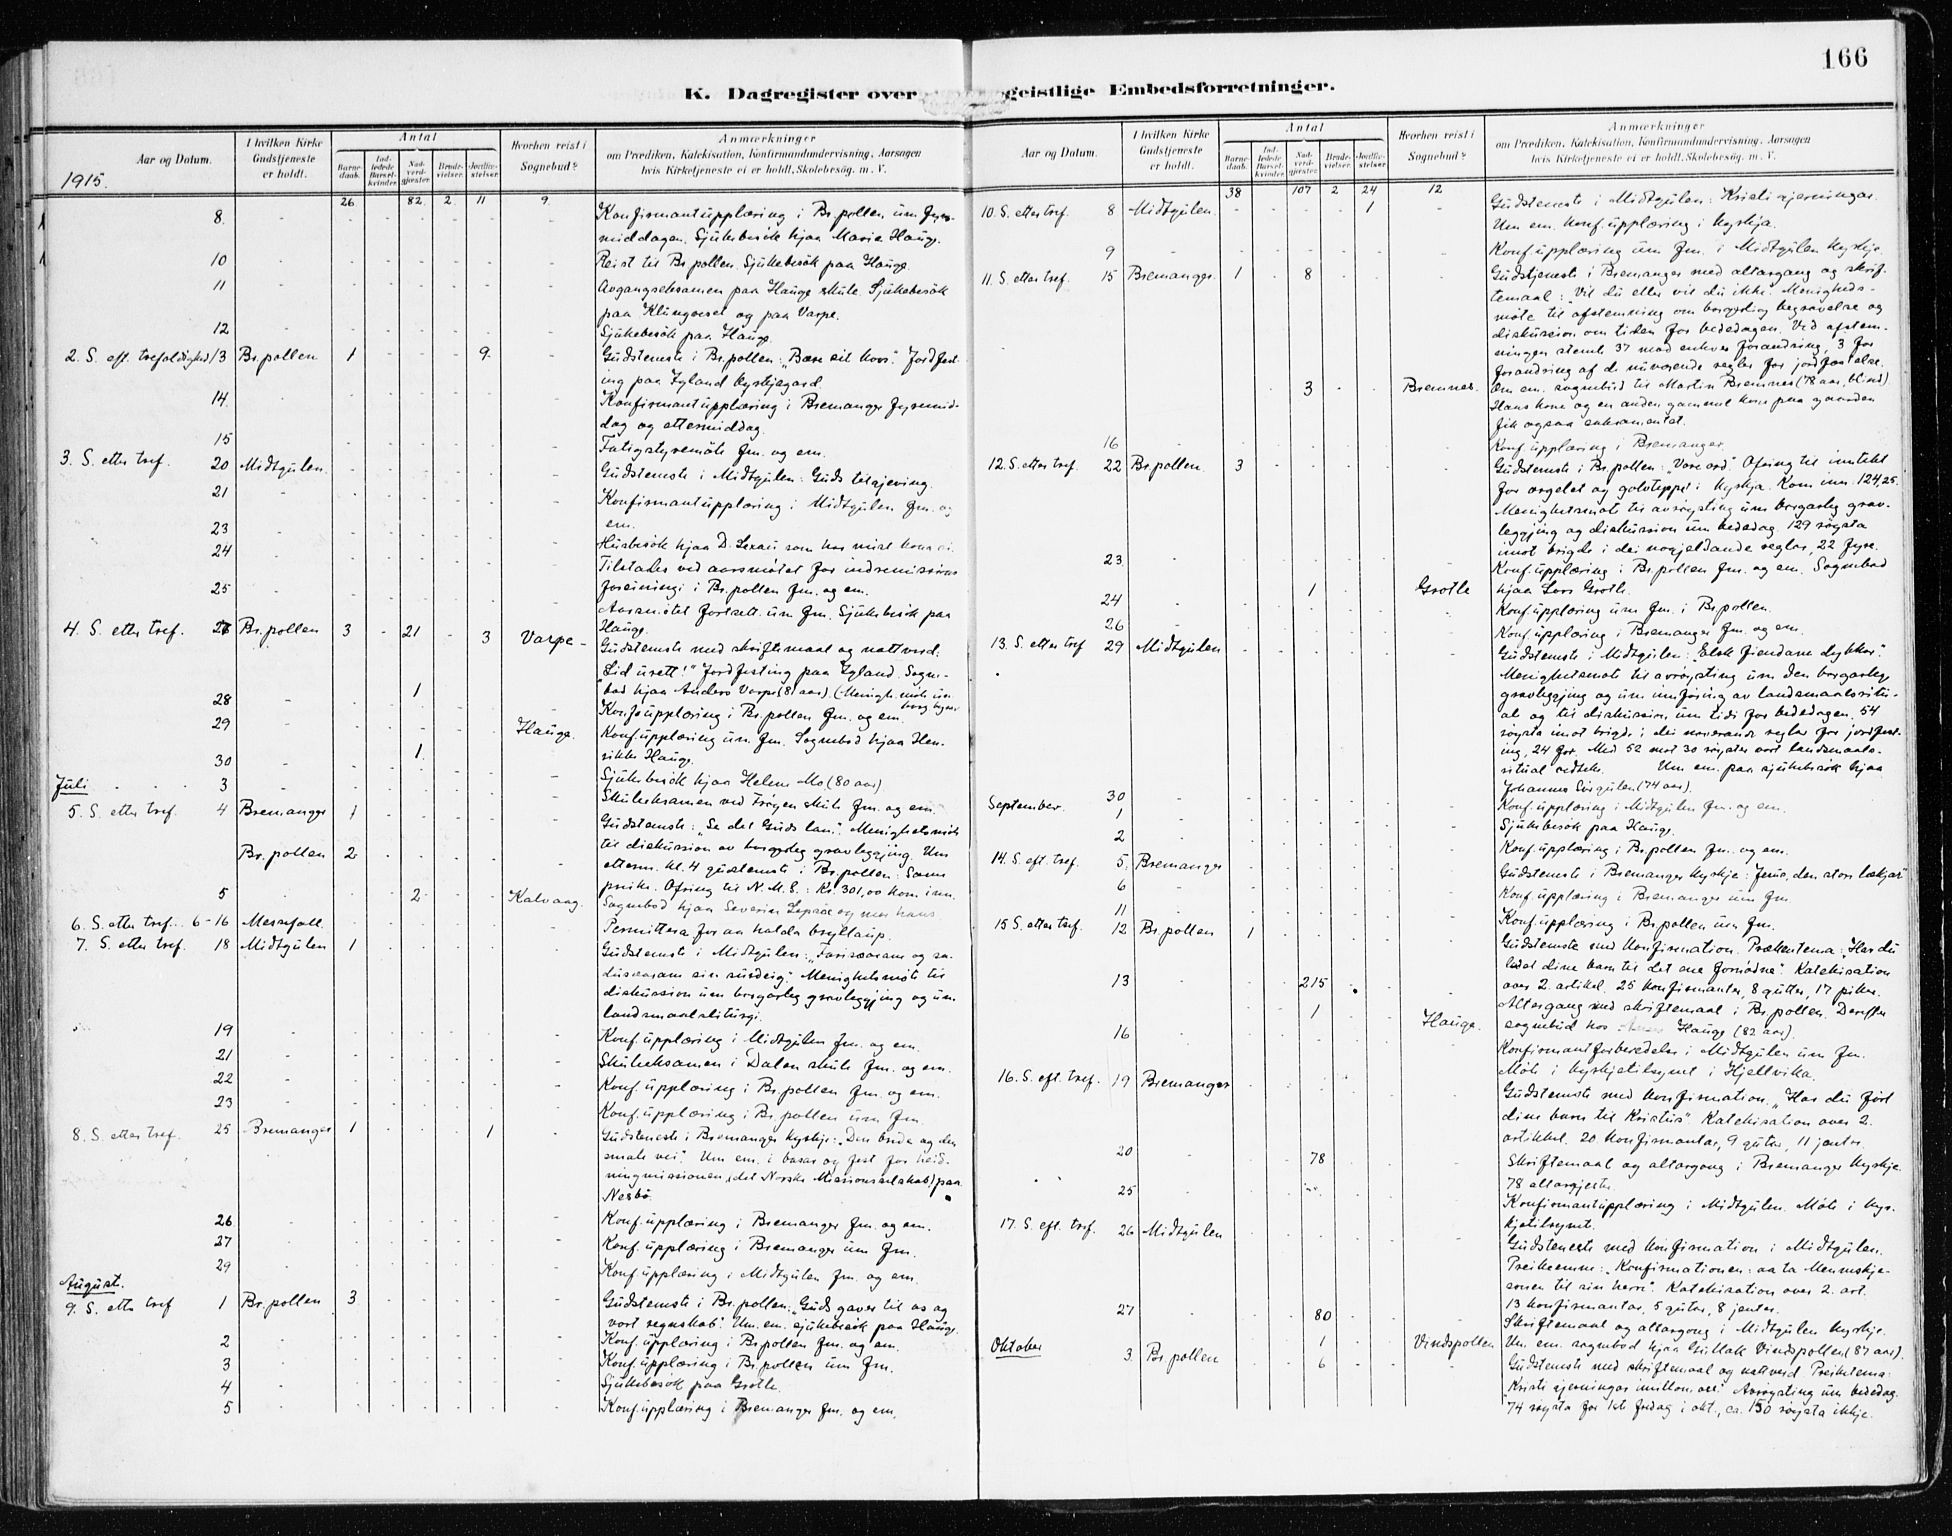 166
K. Dagregister over geistlige Embedsforretninger.
Aar og Datum.
I hvilken Kirke Gudstjeneste er holdt.
Antal
Barnedaab.
Indledede Barselkvinder.
Nadverdgjester.
Brudevielser.
Jordfæstelser.
Hvorhen reist i Sognebud?
Anmærkninger
om Prædiken, Katekisation, Konfirmandundervisning, Aarsagen
hvis Kirketjeneste ei er holdt, Skolebesøg. m. V.
1915.
26 82 2 11 9
8. Konfirmantupplæring i Br.pollen um fyre-
middagen. Sjukebesök hjaa Maria Hauge.
10 Reist til Br.pollen. Sjukebesök paa Hauge
11 Avgangseksamen paa Hauge skule. Sjukebesök
paa Klungreset og paa Varpe.
12 Sjukebesök paa Hauge.
2. S. eft. trefoldighed 13 Br.pollen 1 9 Gudsteneste i Br.pollen: „Bære sit kors". Jordfest-
ing paa Igland kyrkjegard.
14. Konfirmantupplæring i Bremanger fyremid-
dag og ettermiddag.
15 Fatigstyremöte fm. og em.
3. S. etter tref. 20 Midtgulen Gudsteneste i Midtgulen: Guds tilgjeving.
21 Konfirmantupplæring i Midtgulen fm. og
em.
23 Husbesök hjaa D. Lexau som har mist kona si.
24 Tilstades ved aarsmötet for indremissions
foreiningi i Br.pollen fm. og em.
25 Aarsmötet fortsett um fm. Sjukebesök paa
Hauge.
4. S. etter tref. 27 Br.pollen 3 21 3 Varpe Gudsteneste med skriftemaal og nattverd.
Lid urett!" Jordfesting paa Igland. Sogne-
1 bod hjaa Anders Varpe (81 aar). (Menigh.möte um
28 Konf.upplæring i Br.pollen fm. og em.
29 Hauge. Konf.upplæring um fm. Sognbod hjaa Hen-
1 rikke Hauge.
30 Sjukebesök hjaa Helene Mo (80 aar)
Juli 3 Skuleeksamen ved Fröyen skule fm. og em.
5. S. etter tref. 4 Bremanger 1 Gudsteneste: „Se det Guds lam". Menighetsmöte
til diskussion av borgarleg gravleggjing. Um
Br.pollen 2 etterm. kl. 4 gudsteneste i Br.pollen: Same
preike. Ofring til N.M.S.: Kr. 301,00 kom inn.
5 2 Kalvaag. Sognbod hjaa Severin
6. S. etter tref. 6-16 Messefall. Permittera for aa halda bryllaup.
7. S. etter tref. 18 Midtgulen 1 Gudsteneste i Midtgulen: „Farisæarane og sa-
duisearane sin surdeig". Menighetsmöte til
diskussion um borgarleg gravleggjing og um
landsmaalsliturgi.
19 Konf.upplæring i Midtgulen fm. og em.
21 Skuleeksamen i Dalen skule fm. og em.
22 Konf.upplæring i Br.pollen fm. og em.
23 Konf.upplæring i Br.pollen um fm.
8. S. etter tref. 25 Bremanger 1 1 Gudsteneste i Bremanger kyrkje: „Den breide og den
smale vei". Um em. i basar og fest for heid-
ningmissionen (det Norske Missionsselskab) paa
Nesbö.
26 Konf.upplæring i Bremanger fm. og em.
27 Konf.upplæring i Bremanger um fm.
29 Konf.upplæring i Midtgulen fm. og em.
August.
9. S. etter tref 1 Br.pollen 3 Gudsteneste i Br.pollen: „Guds gaver til os og
vort regnskab". Um em. sjukebesök paa Hauge.
2 Konf.upplæring i Br.pollen fm. og em.
3 Konf.upplæring i Br.pollen um fm.
4 Sjukebesök paa Grotle.
5 Konf.upplæring i Bremanger fm. og em.
Aar og Datum.
I hvilken Kirke Gudstjeneste er holdt.
Antal
Barnedaab.
Indledede Barselkvinder.
Nadverdgjester.
Brudevielser.
Jordfæstelser.
Hvorhen reist i Sognebud?
Anmærkninger
om Prædiken, Katekisation, Konfirmandundervisning, Aarsagen
hvis Kirketjeneste ei er holdt, Skolebesøg. m. V.
38 107 2 24 12
10. S. etter tref. 8 Midtgulen. 1 Gudsteneste i Midtgulen: Kristi gjerningar.
Um em. konf.upplæring i kyrkja.
9 Konf.upplæring um fm. i Midtgulen kyrkje
11. S. etter tref. 15 Bremanger. 1 8 Gudstjeneste i Bremanger med altargang og skrif-
temaal: „Vil du eller vil du ikke". Menigheds-
möte til afstemning om borgerlig begravelse og
diskussion om tiden for bededagen. Ved afstem-
ningen stemte 37 mod enhver forandring, 3 for
forandring af de nuværende regler for jordfæstelse.
3 Bremnes. Um em. sognebud til Martin Bremnes (78 aar, blind).
Hans kone og en anden gammel kone paa gaarden
fik ogsaa sakramentet.
16 Konf.upplæring i Bremanger.
12. S. etter tref. 22 Br.pollen. 3 Gudsteneste i Br.pollen: „Vore ord". Ofring til inntekt
for orgelet og golvteppe i kyrkja. Kom inn 124,25.
Menighetsmöte til avröysting um borgarleg grav-
leggjing og diskussion um bededag. 129 röysta
imot brigde i dei nogjeldande reglar, 22 fyre.
23 Konf.upplæring i Br.pollen fm. og em. Sognbod
1 Grotle hjaa Lars Grotle.
24 Konf.upplæring um fm. i Br.pollen.
26 Konf.upplæring i Bremanger fm. og em.
13. S. etter tref 29 Midtgulen Gudsteneste i Midtgulen: „Elsk fiendane dykkar".
Menighetsmöte til avröysting um den borgarlege
gravleggjing og um innföring av landsmaalsritu-
al og til diskussion um tidi for bededagen. 54
röysta imot brigde i dei noverande reglar for jordfest-
ing, 24 for. Med 52 mot 30 röyster vart landsmaals-
ritual vedteke. Um em. paa sjukebesök hjaa
Johannes Sörgulen (74 aar).
30 Konf.upplæring i Midtgulen fm. og em.
September. 1 Sjukebesök paa Hauge.
2 Konf.upplæring i Br.pollen fm. og em.
14. S. eft. tref. 5 Bremanger Gudsteneste i Bremanger kyrkje: Jesus, den store lækjar"
6 Konf.upplæring i Bremanger um fm.
11 Konf.upplæring i Br.pollen um fm.
15 S. etter tref. 12 Br.pollen 1 Gudsteneste med konfirmation. Præketema: „Har du
ledet dine barn til det ene fornödne". Katekisation
over 2. artikel. 25 konfirmanter, 8 gutter, 17 piker.
13 215 Altergang med skriftemaal i Br.pollen. Derefter
1 Hauge. sognebud hos Hauge (82 aar).
16 Konfirmantforberedelse i Midtgulen um fm.
Möte i kyrkjetilsynet i Hjellvika.
16. S. eft. tref. 19 Bremanger Gudsteneste med konfirmation. „Har du fört
dine barn til Kristus". Katekisation over 2.
artikkel. 20 konfirmantar, 9 gutar, 11 jentor.
20 78 Skriftemaal og altargong i Bremanger kyrkje
78 altargjester.
25 Konfirmantupplæring i Midtgulen. Möte i kyr-
kjetilsynet.
17. S. eft. tref. 26 Midtgulen Gudsteneste med konfirmation i Midtgulen.
Preikeemne: „Konfirmationen: aa ta Menneskje-
sonen til sin herre". Katekisation over 2. art.
13 konfirmantar, 5 gutar, 8 jenter.
27 80 Skriftemaal og altargong i Midtgulen kyrkje.
1 Vindspollen Um em. sognbod hjaa Gullak Vindspollen (87 aar).
Oktober 3. Br.pollen 6 Gudsteneste med skriftemaal og nattverd Preiketema:
„Kristi gjerningar imillom oss". Avröysting um bededag.
74 röysta for 1ste fredag i okt., ca. 150 röysta ikkje.